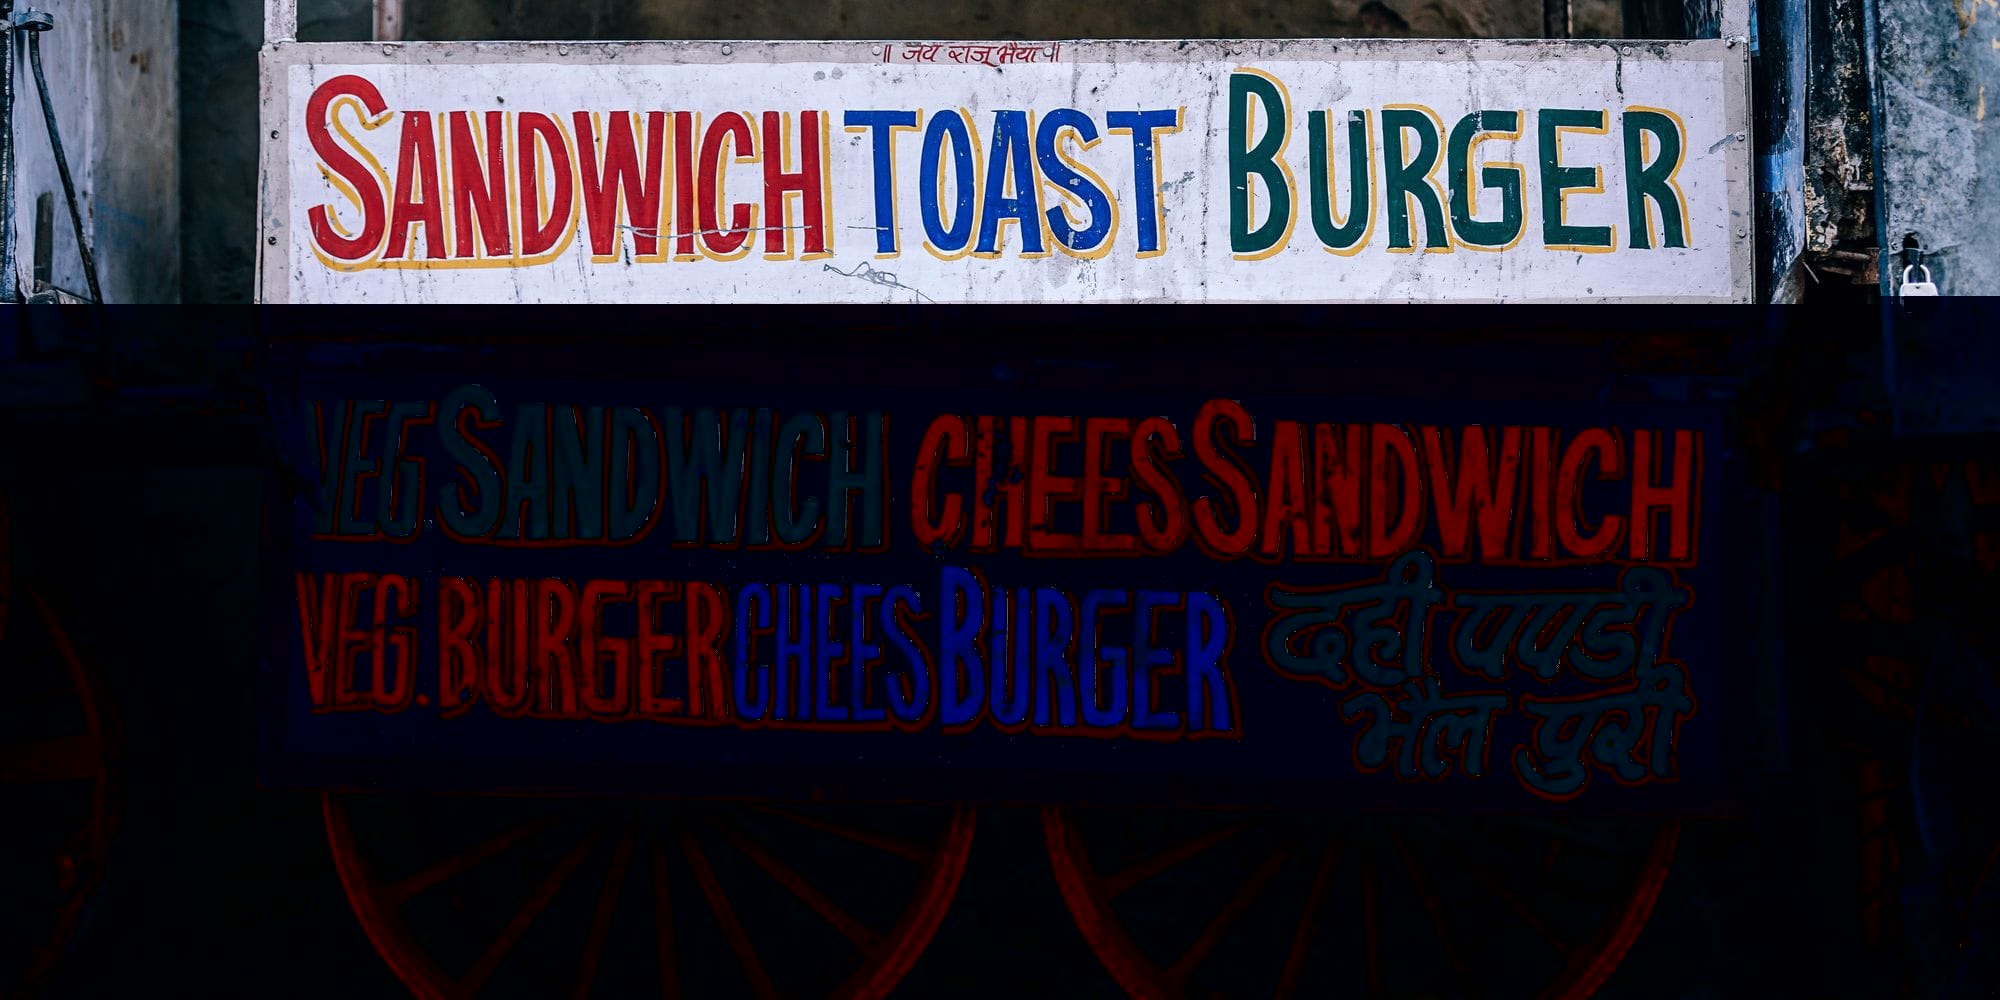 ॥ जय राजू भैया ॥
SANDWICH TOAST BURGER
VEG SANDWICH CHEES SANDWICH
VEG. BURGER CHEES BURGER दही पपडी
भैल पुरी